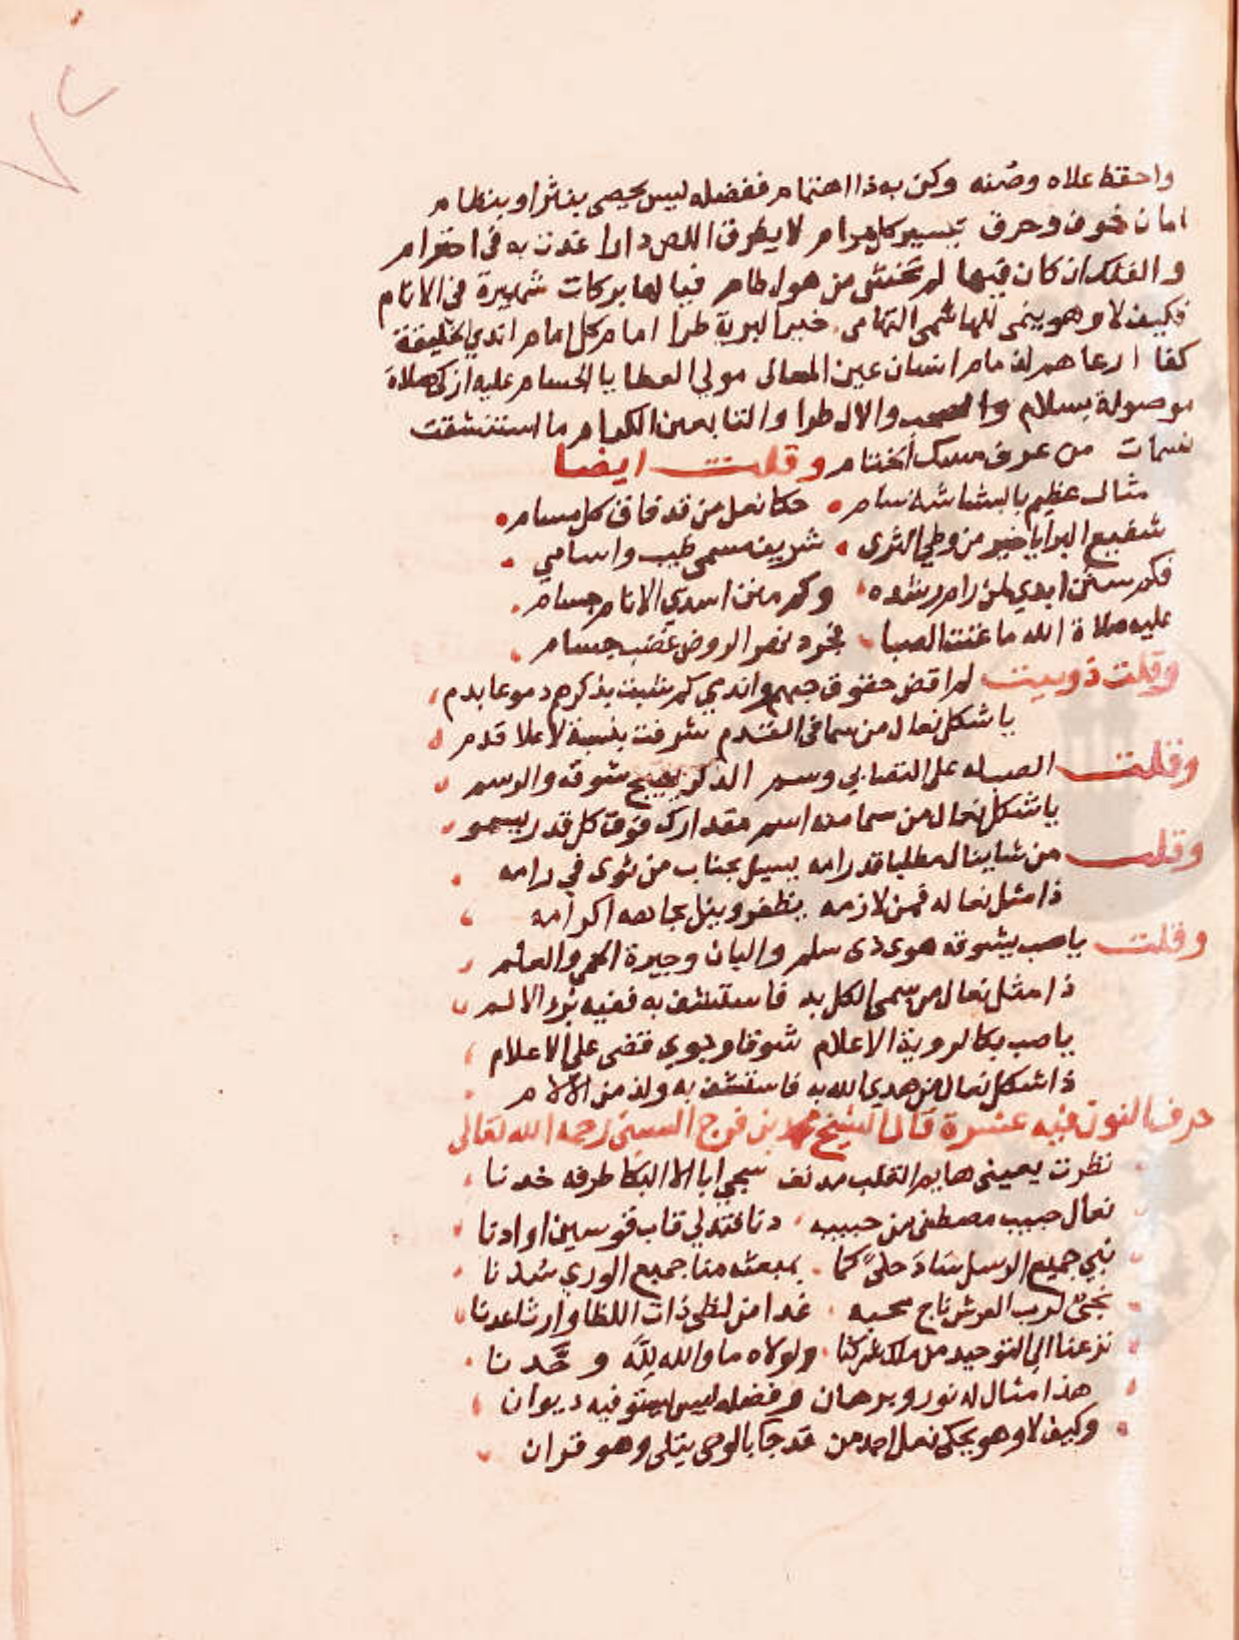 ٧٢
واحفظ علاه وصنه وكن به ذا اهتمام ففضله ليس يحصى بنثر او بنظام
امان خوف وحرق تيسير كل مرام لا يطرق اللص دارا غدت به في احترام
والفلك ان كان فيها لم تختشى من هول طام فيا لها بركات شهيرة في الانام
فكيف لا وهو ينمى للهاشمى التهامى خير البرية طرا امام كل امام اندي الخليقة
كفا ارعاهم لذمام انسان عين المعالى مولي العطايا الجسام عليه ازكى صلاة
موصولة بسلام والصحب والال طرا والتابعين الكرام ما استنشقت
نسمات من عرف مسك الختام وقلت ايضا
مثال عظيم بالبشاشة سام حكا نعل من قد فاق كل مسام
شفيع البرايا خير من وطي الثرى شريف مسمى طيب واسامي
فكم سنن ابدي لمن رام رشده وكم منن اسدي الانام جسام
عليه صلاة الله ما غنت الصبا فجرد نهر الروض عضب حسام
وقلت ذوبيت لم اقض حقوق حبهم واندي كم شيبت بذكرهم دموعا بدم
يا شكل نعال من سما في القدم شرفت بنسبة لاعلا قدم
وقلت الصب له على التصابي وسم الذكر يهيج شوقه والرسم
يا شكل نعال من سما منه اسم مقدارك فوق كل قدر يسمو
وقلت من شا ينال مطلبا قد رامه يسيل بجناب من ثوى في رامه
ذا مثل نعاله فمن لازمه يظفر وينل بجاهه اكرامه
وقلت يا صب يشوقه هوى ذى سلم والبان وجيرة الحمى والعلم
ذا مثل نعال من سمى الكل به فاستشف به ففيه برء الالم
يا صب بكا لروية الاعلام شوقا وجوي قضى على الاعلام
ذا شكل نعال من هدي الله به فاستشف به ولذ من الالام
حرف النون فيه عشرة قال الشيخ محمد بن فرج السبتى رحمه الله تعالى
نظرت بعينى هايم القلب مدنف سجي ابا الا البكا طرفه خدنا
نعال حبيب مصطفى من حبيبه دنا فتدلي قاب قوسين او ادنا
نبي جميع الرسل ساد حلى كما بمبعثه منا جميع الوري سدنا
نجى لرب العرش ناج محبه غدا من لظى ذات اللظا وارثا عدنا
نزعنا الى التوحيد من ملك شركنا ولولاه ما والله لله وحدنا
هذا مثال له نور وبرهان وفضله ليس يستوفيه ديوان
وكيف لا وهو يحكى نعل احمد من قد جآ بالوحى يتلى وهو قران